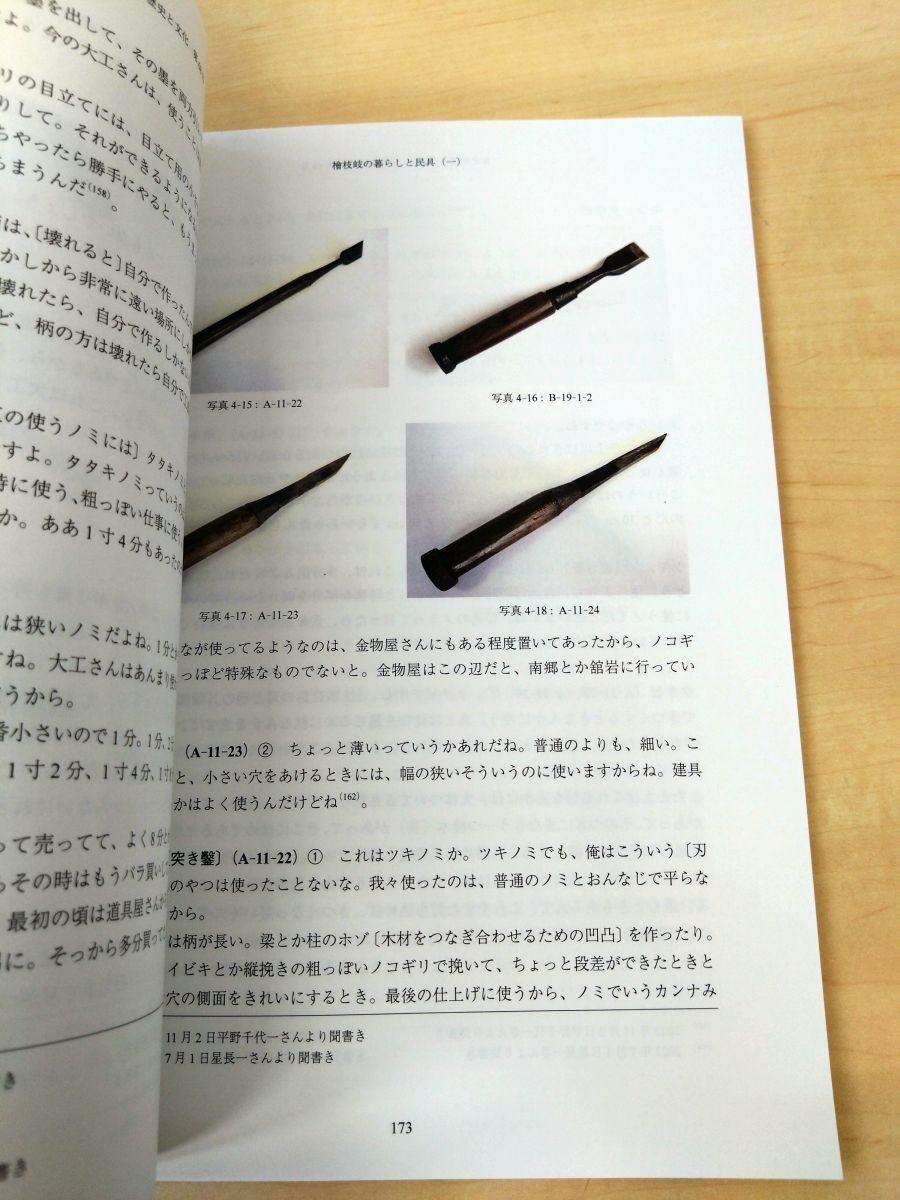 歴史と文化
墨を出して、その墨を両方
よ。今の大工さんは、使うこと
リの目立てには、目立て用の小
りして。それができるようにな
ちやったら勝手にやると、もう
まうんだ(158)。
は、〔壊れると〕自分で作ったん
かしから非常に遠い場所にし
壊れたら、自分で作るしかな
ど、柄の方は壊れたら自分で
の使うノミには〕タタキノミ
すよ。タタキノミっていうの
時に使う、粗っぽい仕事に使う
か。ああ1寸4分もあったの
は狭いノミだよね。1分とか
すね。大工さんはあんまり使
うから。
番小さいので1分。1分、2分
1寸2分、1寸4分、1寸
って売ってて、よく8分と
らその時はもうバラ買いし
最初の頃は道具屋さんか
に。そっから多分買って
書き
檜枝岐の暮らしと民具（一）
写真4-15：A-11-22
写真4-16：B-19-1-2
写真4-17：A-11-23
写真4-18：A-11-24
なが使ってるようなのは、金物屋さんにもある程度置いてあったから、ノコギ
っぽど特殊なものでないと。金物屋はこの辺だと、南郷とか舘岩に行ってい
（A-11-23）②　ちょっと薄いっていうかあれだね。普通のよりも、細い。こ
と、小さい穴をあけるときには、幅の狭いそういうのに使いますからね。建具
かはよく使うんだけどね(162)。
突き鑿］（A-11-22）①　これはツキノミか。ツキノミでも、俺はこういう〔刃
のやつは使ったことないな。我々使ったのは、普通のノミとおんなじで平らな
から。
は柄が長い。梁とか柱のホゾ〔木材をつなぎ合わせるための凹凸〕を作ったり。
イビキとか縦挽きの粗っぽいノコギリで挽いて、ちょっと段差ができたときと
穴の側面をきれいにするとき。最後の仕上げに使うから、ノミでいうカンナみ
11月2日平野千代一さんより聞書き
7月1日星長一さんより聞書き
173